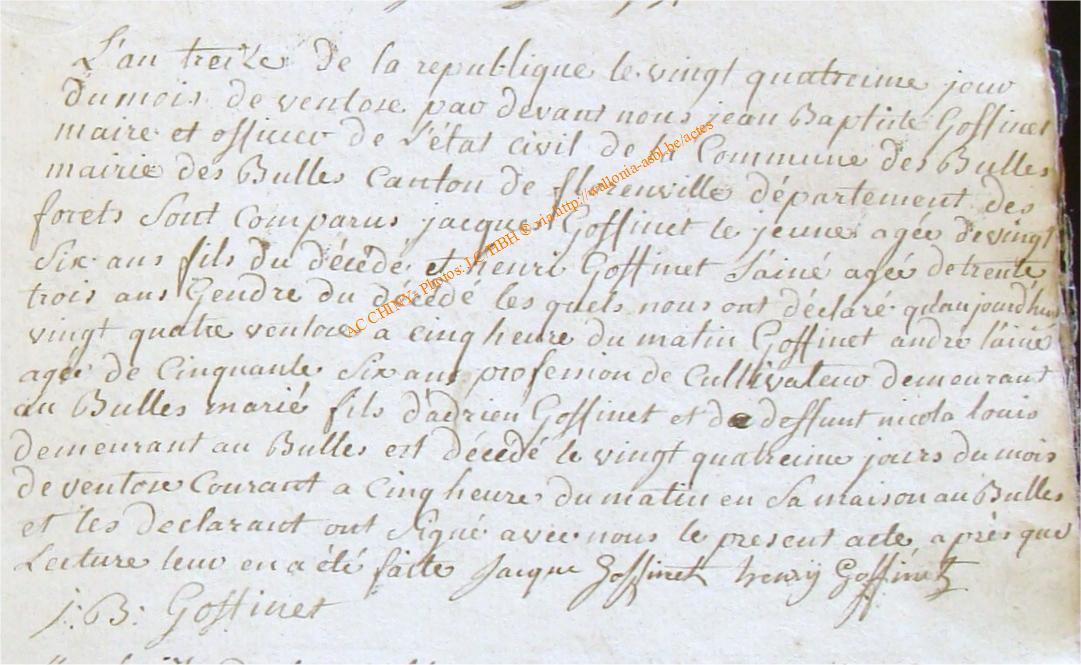 L'an treize de la republique le vingt quatreime jour
du mois de ventose par devant nous jean Baptiste Goffinet
maire et officier de l'état Civil de la Commune des Bulles
mairie des Bulles Canton de florenville département des
forets Sont Comparus jacque Goffinet le jeune agée de vingt
Six ans fils du décédé et henri Goffinet l'ainé agée de trente
trois ans Gendre du décédé les quels nous ont déclaré qu'aujourd'hui
vingt quatre ventose a cinq heure du matin Goffinet andré l'ainé
agée de Cinquante Six ans profession de Cultivateur demeurant
au Bulles marié fils d'adrien Goffinet et de deffunt nicola louis
demeurant au Bulles est décédé le vingt quatreime jours du mois
de ventose Courant a Cinq heure du matin en Sa maison au Bulles
et les declarant ont Signé avec nous le present acte après que
Lecture leur en a été faite Jacque Goffinet henry Goffinet
j: B: Goffinet
AC CHINY - Photos. J.C THBH ® via http://wallonia-asbl.be/actes